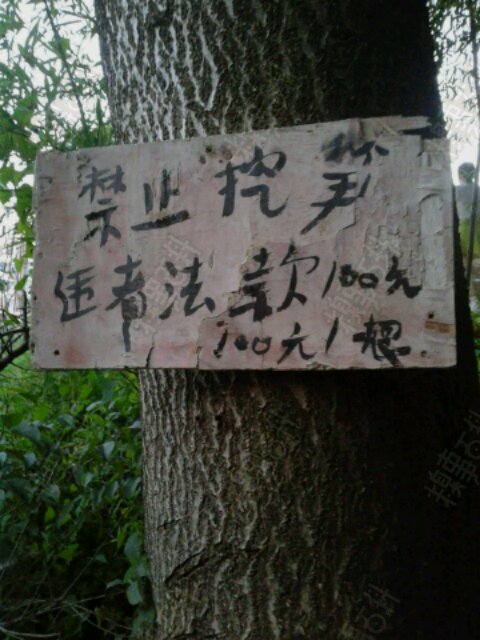 禁止挖笋
违者法款100元
100元1